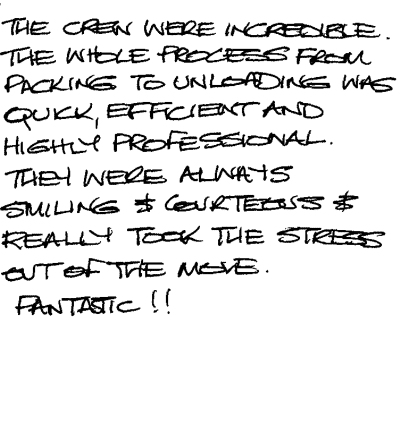 THE CREW WERE INCREDIBLE.
THE WHOLE PROCESS FROM
PACKING TO UNLOADING WAS
QUICK, EFFICIENT AND
HIGHLY PROFESSIONAL.
THEY WERE ALWAYS
SMILING & COURTEOUS &
REALLY TOOK THE STRESS
OUT OF THE MOVE.
FANTASTIC !!